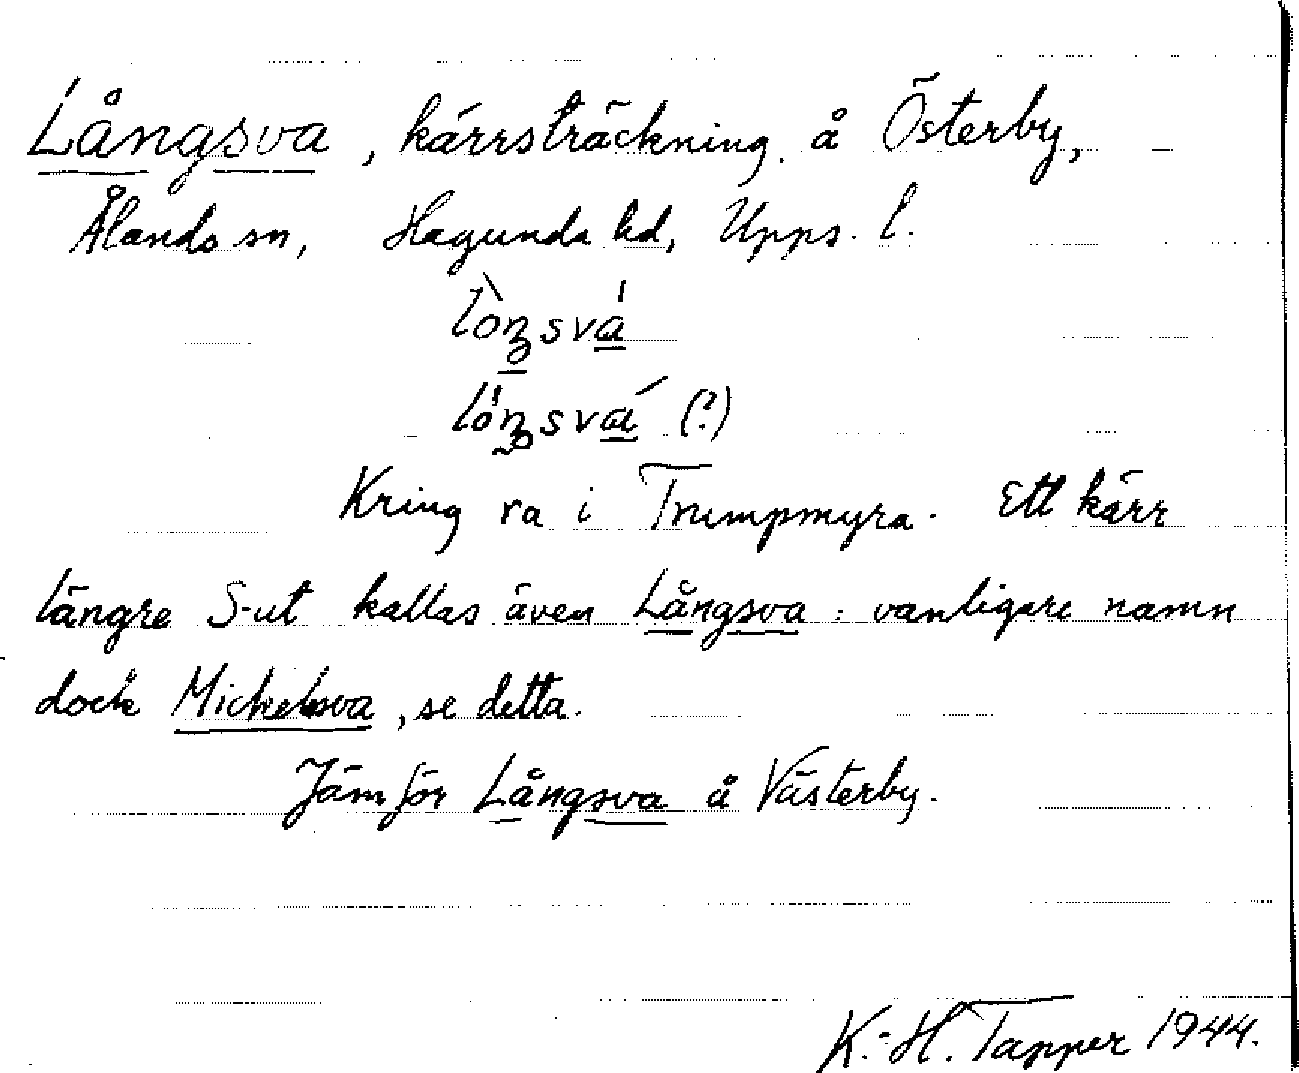 Långsva, kärrsträckning å Österby,
Ålands sn, Hagunda hd, Upps. l.
Kring ra i Trumpmyra. Ett kärr
längre S-ut kallas även Långsva: vanligare namn
dock Mickelsva, se detta.
Jämför Långsva å Västerby.
K.-H. Tapper 1944.